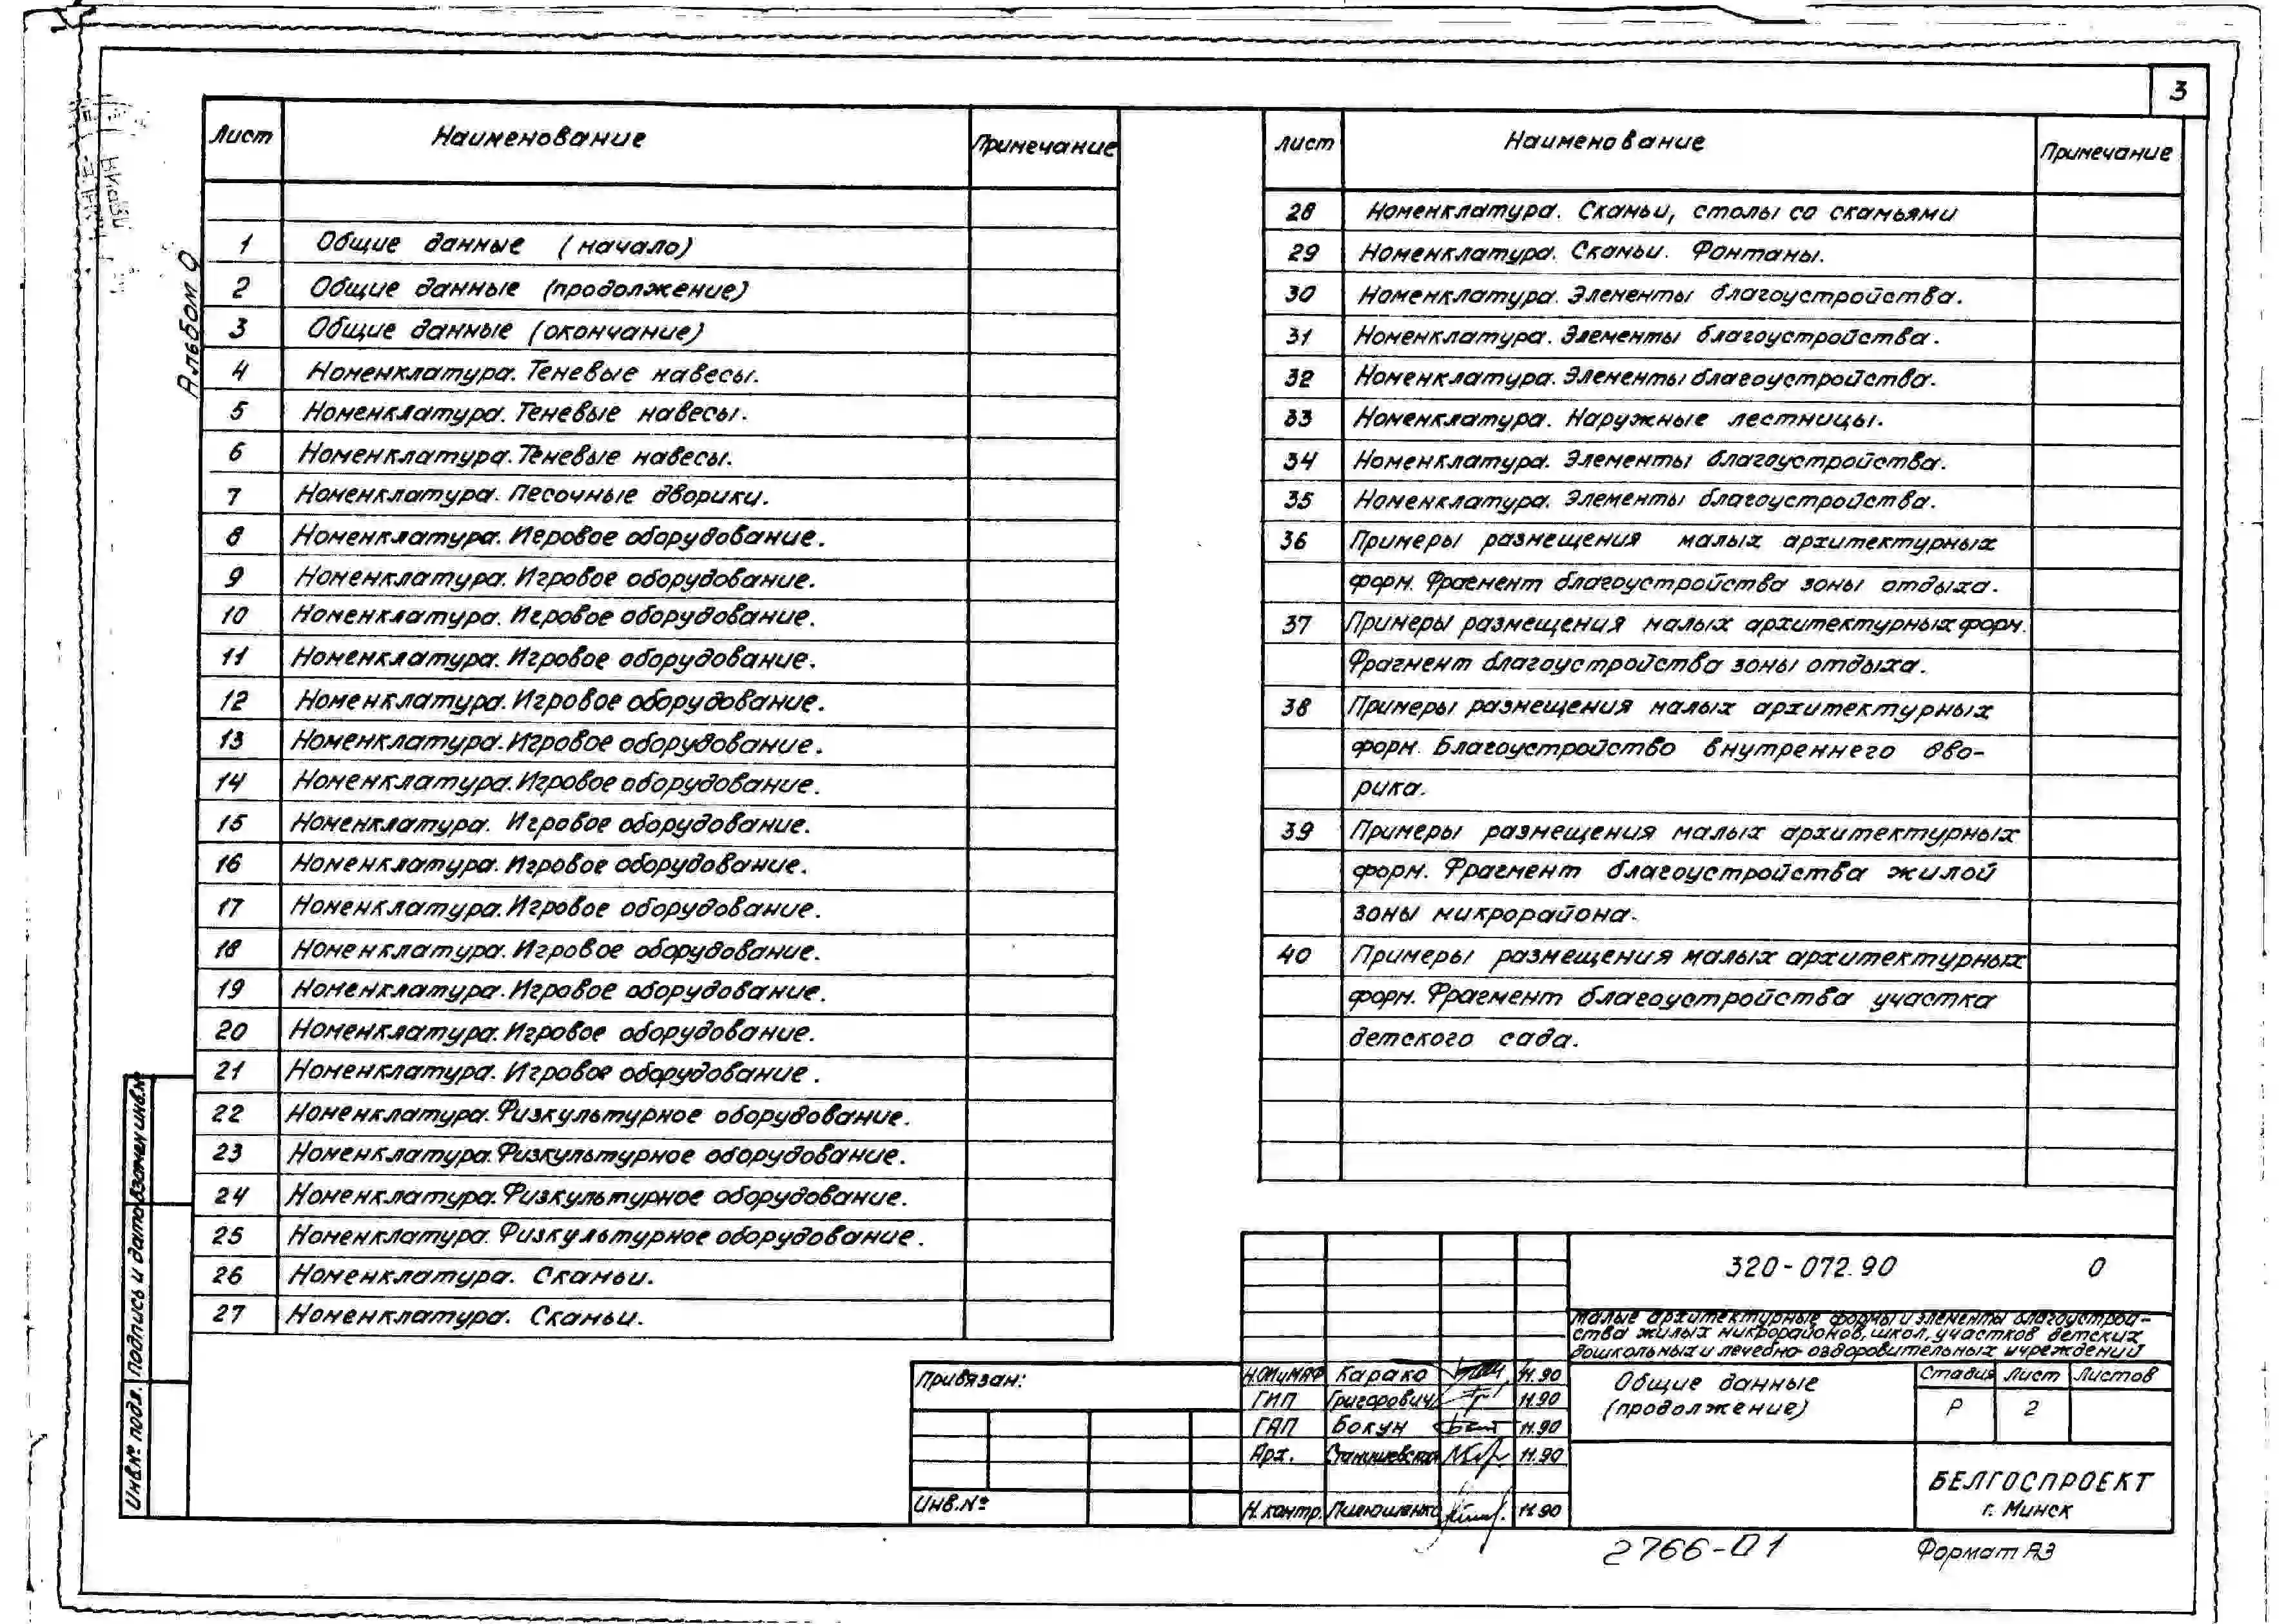 3
Альбом 0
Лист Наименование Примечание
1 Общие данные (начало)
2 Общие данные (продолжение)
3 Общие данные (окончание)
4 Номенклатура. Теневые навесы.
5 Номенклатура. Теневые навесы.
6 Номенклатура. Теневые навесы.
7 Номенклатура. Песочные дворики.
8 Номенклатура. Игровое оборудование.
9 Номенклатура. Игровое оборудование.
10 Номенклатура. Игровое оборудование.
11 Номенклатура. Игровое оборудование.
12 Номенклатура. Игровое оборудование.
13 Номенклатура. Игровое оборудование.
14 Номенклатура. Игровое оборудование.
15 Номенклатура. Игровое оборудование.
16 Номенклатура. Игровое оборудование.
17 Номенклатура. Игровое оборудование.
18 Номенклатура. Игровое оборудование.
19 Номенклатура. Игровое оборудование.
20 Номенклатура. Игровое оборудование.
21 Номенклатура. Игровое оборудование.
22 Номенклатура. Физкультурное оборудование.
23 Номенклатура. Физкультурное оборудование.
24 Номенклатура. Физкультурное оборудование.
25 Номенклатура. Физкультурное оборудование.
26 Номенклатура. Скамьи.
27 Номенклатура. Скамьи.
Лист Наименование Примечание
28 Номенклатура. Скамьи, столы со скамьями
29 Номенклатура. Скамьи. Фонтаны.
30 Номенклатура. Элементы благоустройства.
31 Номенклатура. Элементы благоустройства.
32 Номенклатура. Элементы благоустройства.
33 Номенклатура. Наружные лестницы.
34 Номенклатура. Элементы благоустройства.
35 Номенклатура. Элементы благоустройства.
36 Примеры размещения малых архитектурных
форм. Фрагмент благоустройства зоны отдыха.
37 Примеры размещения малых архитектурных форм.
Фрагмент благоустройства зоны отдыха.
38 Примеры размещения малых архитектурных
форм. Благоустройство внутреннего дво-
рика.
39 Примеры размещения малых архитектурных
форм. Фрагмент благоустройства жилой
зоны микрорайона.
40 Примеры размещения малых архитектурных
форм. Фрагмент благоустройства участка
детского сада.
Инв.№ подл. Подпись и дата Взамен инв.№
Привязан:
Инв.№
Н.ОИиМАФ Карако 11.90
ГИП Григорович 11.90
ГАП Бокун 11.90
Арх. Станишевская 11.90
Н.контр. 11.90
320-072.90 0
Малые архитектурные формы и элементы благоустрой-
ства жилых микрорайонов, школ, участков детских
дошкольных и лечебно-оздоровительных учреждений
Общие данные
(продолжение)
Стадия Лист Листов
Р 2
БЕЛГОСПРОЕКТ
г. Минск
2766-01
Формат А3